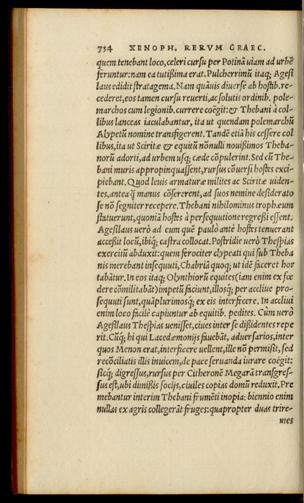 734 XENOPH. RERVM GRAEC.
quem tenebant loco, celeri cursu per Potniã uiam ad urbẽ
feruntur: nam ea tutißima erat. Pulcherrimũ itaq; Agesi
laus edidit stratagema. Nam quãuis diuersè ab hostib. re-
cederet, eos tamen cursu reuerti, ac solutis ordinib. pole-
marchos cum legionib. currere coëgit: & Thebani à col-
libus lanceas iaculabantur, ita ut quendam polemarchũ
Alypetũ nomine transfigerent. Tandẽ etiã his ceßere col
libus, ita ut Sciritæ & equitũ nõnulli nouißimos Theba-
norũ adorti, ad urbem usq; cæde cõpulerint. Sed cũ The-
bani muris appropinquaßent, rursus cõuersi hostes exci-
piebant. Quod leuis armaturæ milites ac Sciritæ uiden-
tes, anteq̃ manus cõsererent, ad suos nemine desiderato
se nõ segniter recepere. Thebani nihilominus trophæum
statuerunt, quoniã hostes à persequutione regreßi essent.
Agesilaus uerò ad eum quẽ paulò antè hostes tenuerant
acceßit locũ, ibiq́; castra collocat. Postridie uerò Thespias
exercitũ abduxit: quem ferociter clypeati qui sub Theba
nis merebant insequuti, Chabriã quoq; ut idẽ faceret hor
tabãtur. In eos itaq; Olynthiorũ equites (iam enim ex fœ
dere cõmilitabãt) impetũ faciunt, illosq́; per accliue pro-
sequuti sunt, quãplurimosq́; ex eis interficere. In accliui
enim loco facilè capiuntur ab equitib. pedites. Cum uerò
Agesilaus Thespias uenisset, ciues inter se dißidentes repe
rit. Cũq́; hi qui Lacedæmonijs fauebãt, aduersarios, inter
quos Menon erat, interficere uellent, ille nõ permisit, sed
recõciliatis illis inuicem, de pace seruanda iurare coëgit:
sicq́; digressus, rursus per Citheronẽ Megarã transgres-
sus est, ubi dimißis socijs, ciuiles copias domũ reduxit. Pre
mebantur interim Thebani frumẽti inopia: biennio enim
nullas ex agris collegerãt fruges: quapropter duas trire-
mes